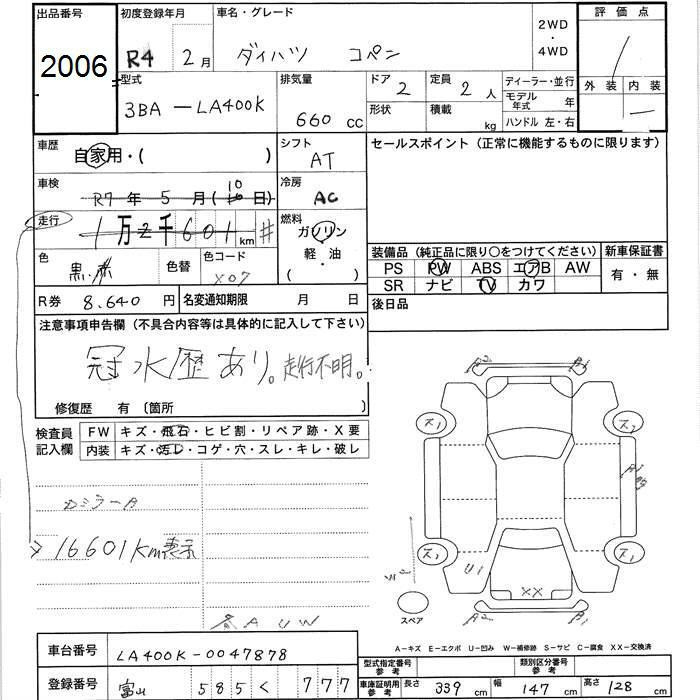 出品番号 初度登録年月 車名・グレード 2WD ・ 4WD 評価点
2006 R4 2月 ダイハツ コペン
型式 排気量 ドア 2 定員 2人 ディーラー・並行 外装 内装
3BA-LA400K 660 cc 形状 積載 kg モデル年式 年
ハンドル 左・右
車歴 自家用・( ) シフト AT セールスポイント (正常に機能するものに限ります)
車検 R7年 5月(10日) 冷房 AC
走行 1万 千601km # 燃料 ガソリン 軽・油 ( )
色 黒 色替 色コード X07
装備品 (純正品に限り○をつけてください) 新車保証書
PS PW ABS エアB AW 有・無
SR ナビ TV カワ
R券 8.640円 名変通知期限 月 日 後日品
注意事項申告欄 (不具合内容等は具体的に記入して下さい)
冠水歴あり。走行不明。
修復歴 有 〔箇所 〕
検査員 FW キズ・飛石・ヒビ割・リペア跡・X要
記入欄 内装 キズ・汚レ・コゲ・穴・スレ・キレ・破レ
16601km表示
A2 A1
U1
XX
スペア
A2
A-キズ E-エクボ U-凹み W-補修跡 S-サビ C-腐食 XX-交換済
車台番号 LA400K-0047878
型式指定番号 参考 類別区分番号 参考
登録番号 富山 585 く 777
車庫証明用 参考 長さ 339cm 幅 147cm 高さ 128cm